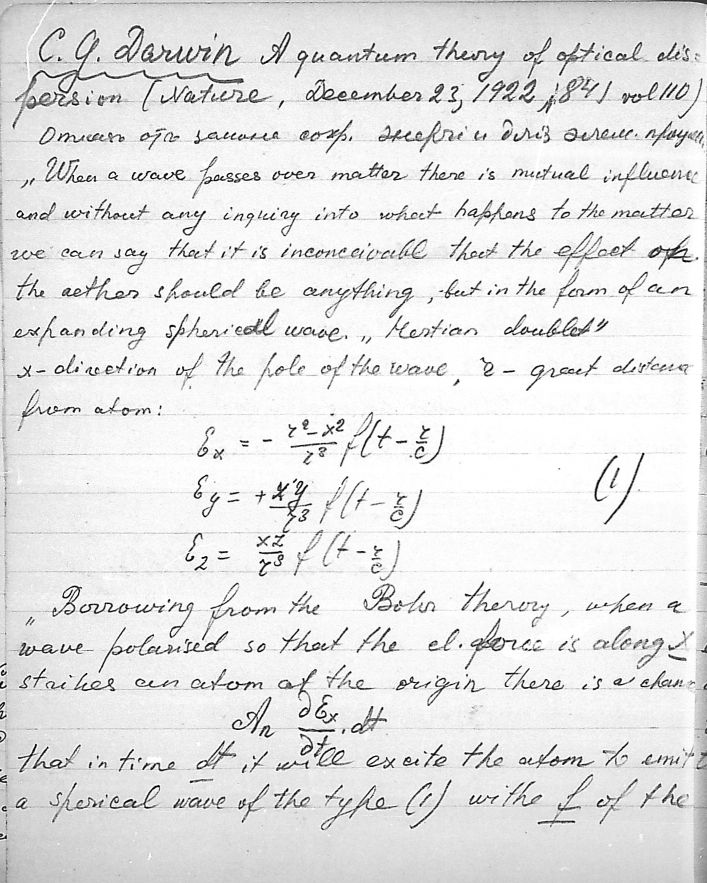 C. G. Darwin A quantum theory of optical dis=
persion (Nature, December 23, 1922, 841 vol 110)
Отказ от закона сохр. энергии для элем. 
„When a wave passes over matter there is mutual influence
and without any inquiry into what happens to the matter
we can say that it is inconceivable that the effect on
the aether should be anything, but in the form of an
expanding spherical wave. „Hertian doublet"
x- direction of the pole of the wave, r - great distance
from atom:
Ɛx = - r²-x²/r³ f(t - r/c)
Ɛy = + xy/r³ f(t - r/c) (1)
Ɛz = xz/r³ f(t - r/c)
„Borrowing from the Bohr theory, when a
wave polarised so that the el. force is along x
strikes an atom at the origin there is a chance
An ∂Ɛx/∂t . dt
that in time dt it will excite the atom to emit
a sperical wave of the type (1) withe f of the